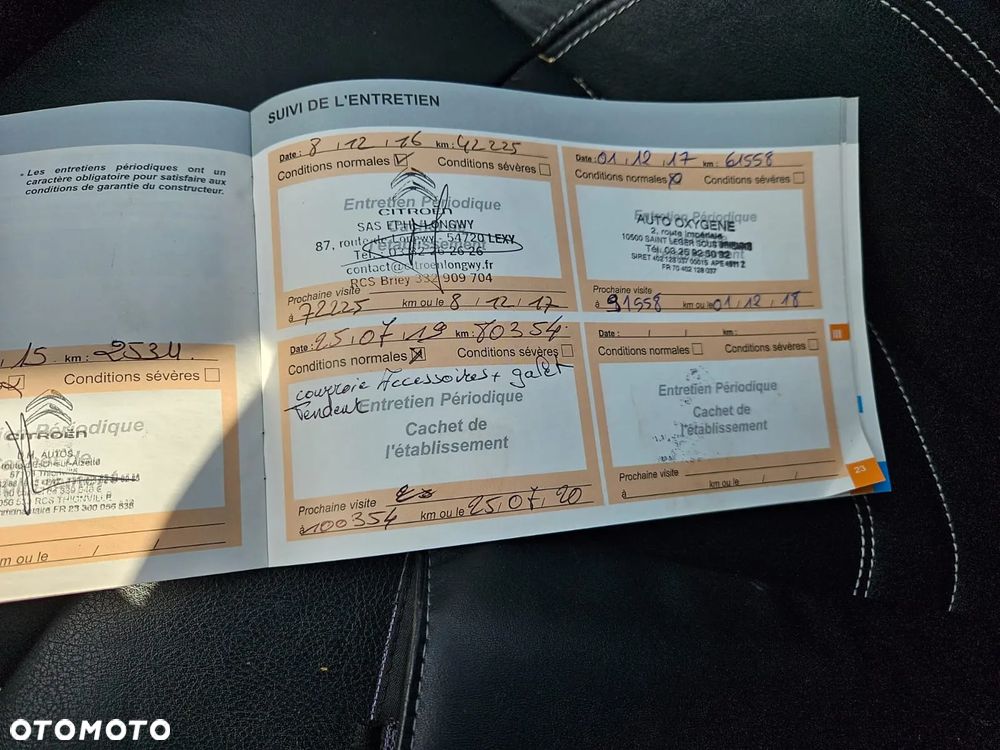 SUIVI DE L'ENTRETIEN
- Les entretiens périodiques ont un
caractère obligatoire pour satisfaire aux
conditions de garantie du constructeur.
15 km :
Conditions sévères
Périodique
CITROËN
M. AUTOS
RCS THIONVILLE
m ou le / /
Date : 8 , 12 , 16 km : 42225
Conditions normales Conditions sévères
Entretien Périodique
CITROËN
SAS EPHI/LONGWY
87, route de Longwy 54720 LEXY
contact@citroenlongwy.fr
RCS Briey 332 909 704
Prochaine visite
à 72225 km ou le 8 , 12 , 17
Date : 01 , 12 , 17 km : 61558
Conditions normales Conditions sévères
Entretien Périodique
AUTO OXYGENE
2, route Impériale
10500 SAINT LEGER SOUS
Tél. 03 25 92 50 92
SIRET 402 128 037 00015 APE
FR 70 402 128 037
Prochaine visite
à 91558 km ou le 01 , 12 , 18
Date : 25 , 07 , 19 km : 80354
Conditions normales Conditions sévères
courroie Accessoires + galet
Tendeur
Entretien Périodique
Cachet de
l'établissement
Prochaine visite
à 100354 km ou le 25 , 07 , 20
Date : / / km :
Conditions normales Conditions sévères
Entretien Périodique
Cachet de
l'établissement
Prochaine visite
à km ou le / /
23
OTOMOTO